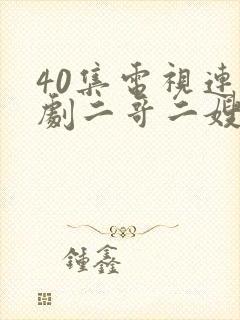 40集電視連
劇二哥二嫂
鍾鑫